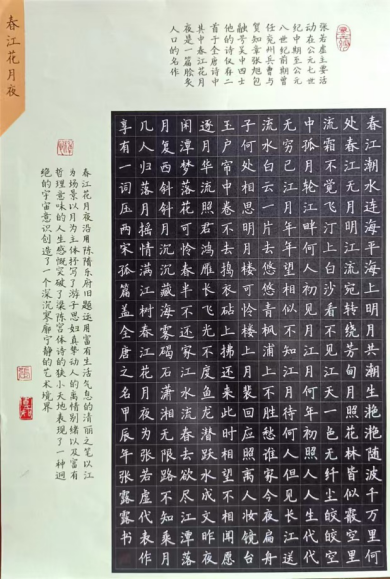 春江花月夜
张若虚主要活
动在公元七世
纪中期至公元
八世纪前期曾
任兖州兵曹与
贺知章张旭包
融号吴中四士
他的诗仅存二
首于全唐诗中
其中春江花月
夜是一篇脍炙
人口的名作
春江潮水连海平海上明月共潮生滟滟随波千万里何
处春江无月明江流宛转绕芳甸月照花林皆似霰空里
流霜不觉飞汀上白沙看不见江天一色无纤尘皎皎空
中孤月轮江畔何人初见月江月何年初照人人生代代
无穷已江月年年望相似不知江月待何人但见长江送
流水白云一片去悠悠青枫浦上不胜愁谁家今夜扁舟
子何处相思明月楼可怜楼上月裴回应照离人妆镜台
玉户帘中卷不去捣衣砧上拂还来此时相望不相闻愿
逐月华流照君鸿雁长飞光不度鱼龙潜跃水成文昨夜
闲潭梦落花可怜春半不还家江水流春去欲尽江潭落
月复西斜斜月沉沉藏海雾碣石潇湘无限路不知乘月
几人归落月摇情满江树春江花月夜为张若虚代表作
享有一词压两宋孤篇盖全唐之名甲辰年张露露书
春江花月夜沿用陈隋乐府旧题运用富有生活气息的清丽之笔以江
为场景以月为主体抒写了游子思妇真挚动人的离情别绪以及富有
哲理意味的人生感慨突破了梁陈宫体诗的狭小天地表现了一种迥
绝的宇宙意识创造了一个深沉寥廓宁静的艺术境界